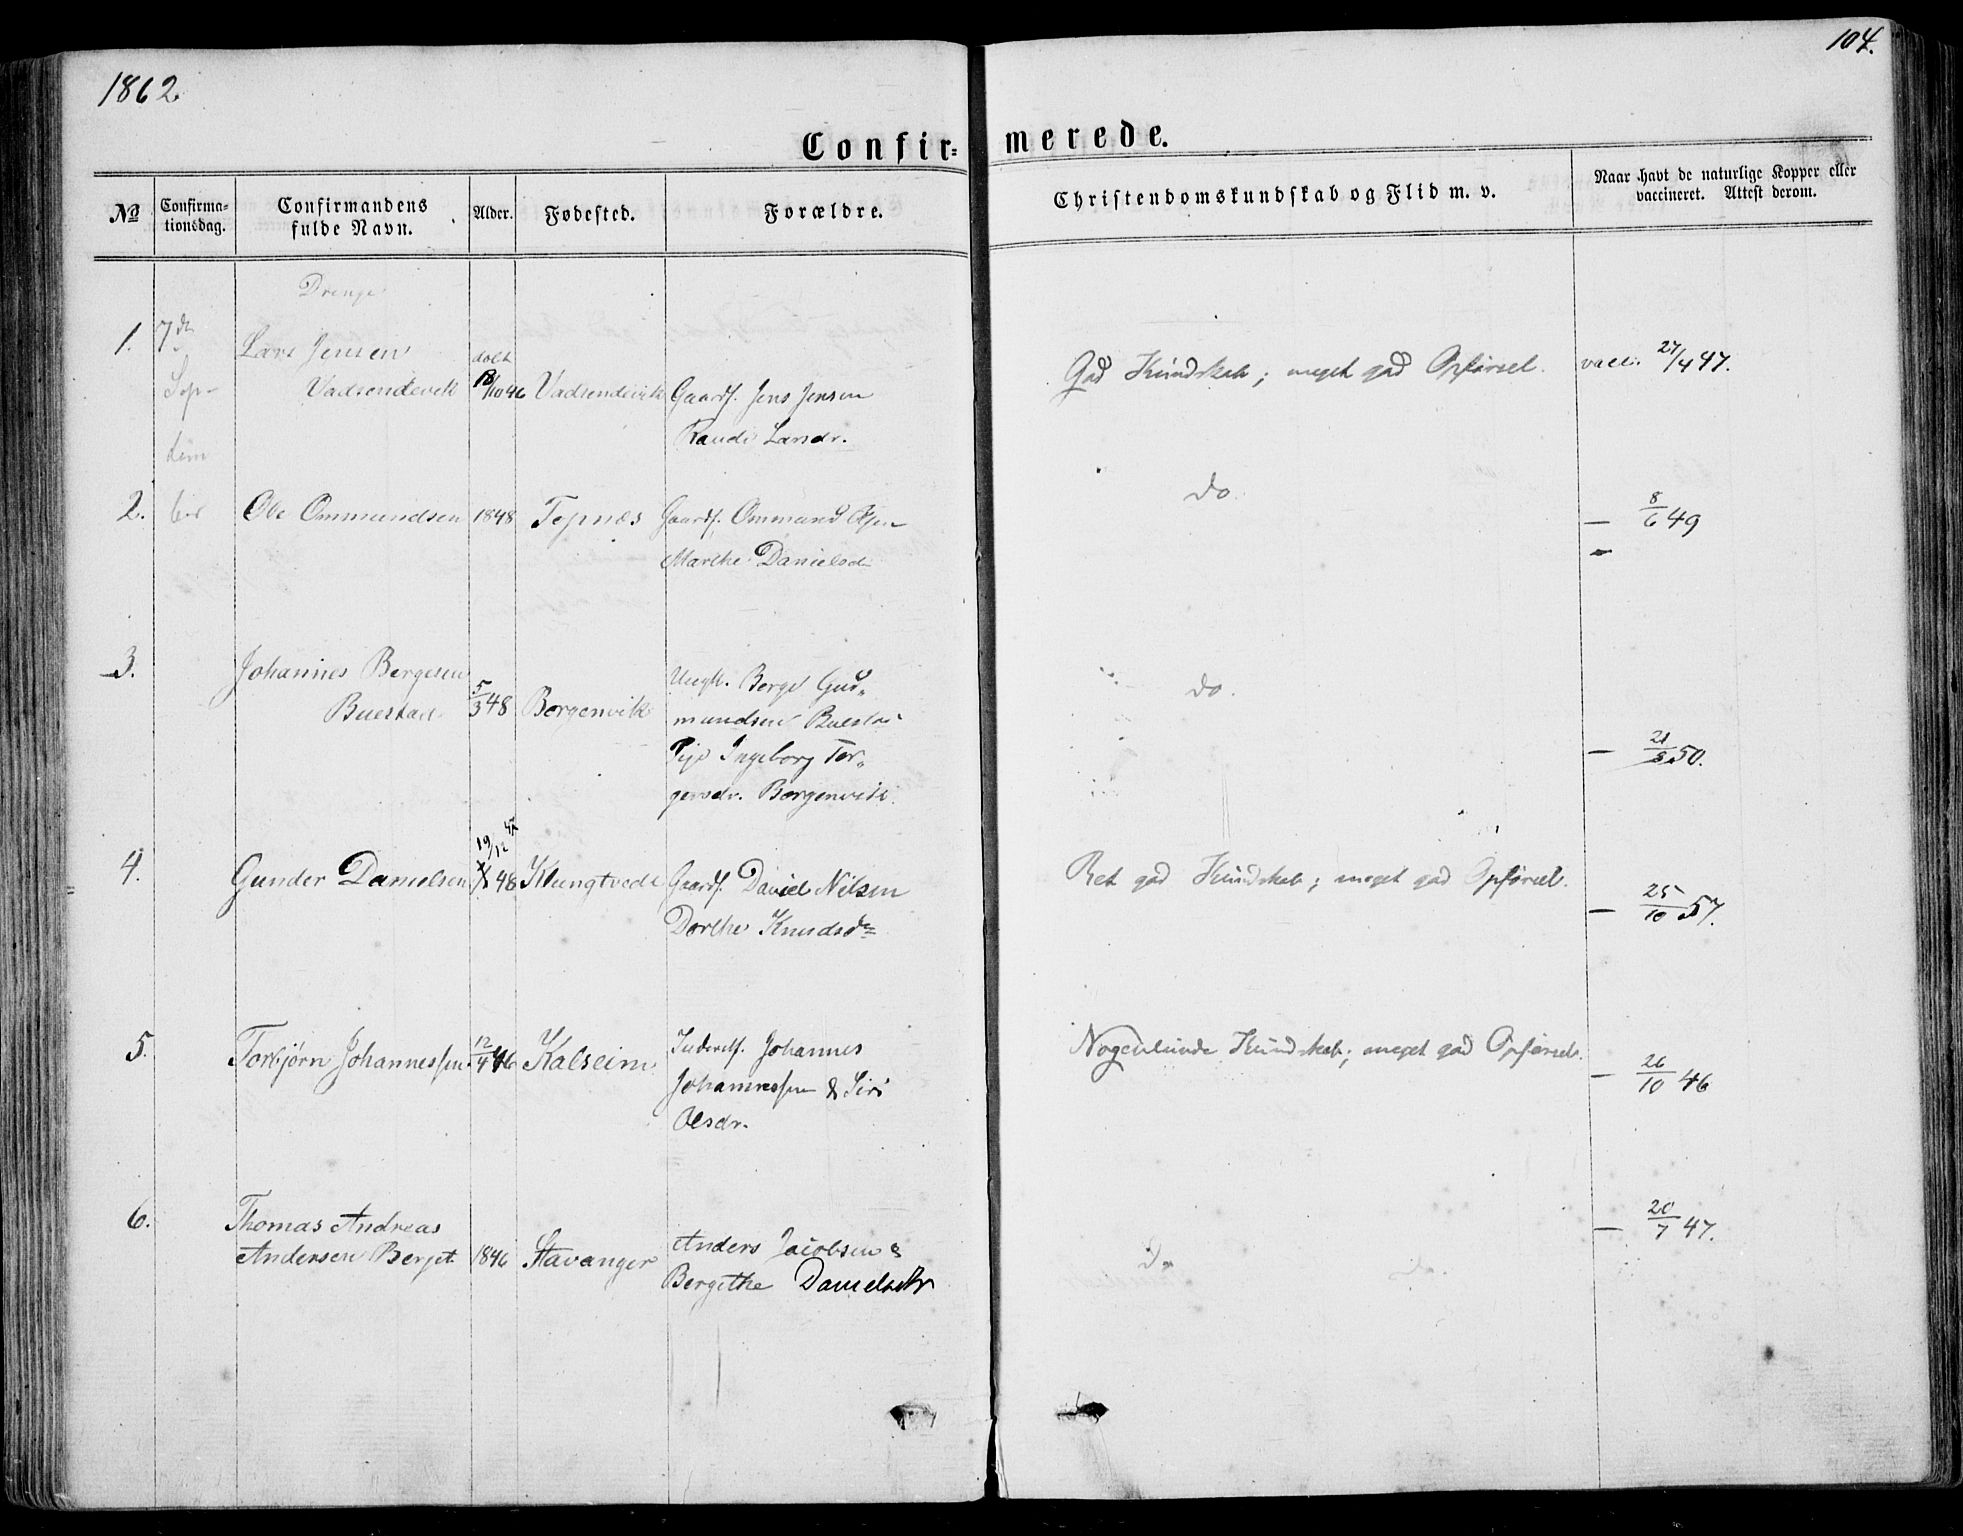 1862
104.
Confir- merede.
No
Confirma-
tionsdag.
Confirmandens
fulde Navn.
Alder.
Fødested.
Forældre.
Christendomskundskab og Flid m. v.
Naar havt de naturlige Kopper eller
vaccineret. Attest derom.
Drenge
1. 7de Lars Jensen døbt
Sep- Vadsendevik 18/10 46 Vadsendevik Gaardf. Jens Jensen God Kundskab; meget god Opførsel. vacc. 27/4 47.
tem Landr.
2. ber Ole Ommundsen 1848 Gaardf. Ommund do. — 8/6 49
Marthe Danielsd
3. Johannes Bergesen Ungk. Berge Gud-
Buestad 5/3 48 Borgenvik mundsen do.
Pige Ingeborg Tor- — 21/8 50.
gersdr. Borgenvik.
19/12
4. Gunder Danielsen 48 Klungtvedt Gaardf. Daniel Nilsen Ret god Kundskab; meget god Opførsel. — 25/10 57.
Dorthe Knudsdr
5. Torbjørn Johannessen 12/4 46 Kalseim Inderstf. Johannes Nogenlunde Kundskab; meget god Opførsel. — 26/10 46
Johannessen & Siri
Olsdr.
6. Thomas Andreas — 20/7 47.
Andersen Berget 1846 Stavanger Anders Jacobsen & Do do.
Bergithe Danielsdtr